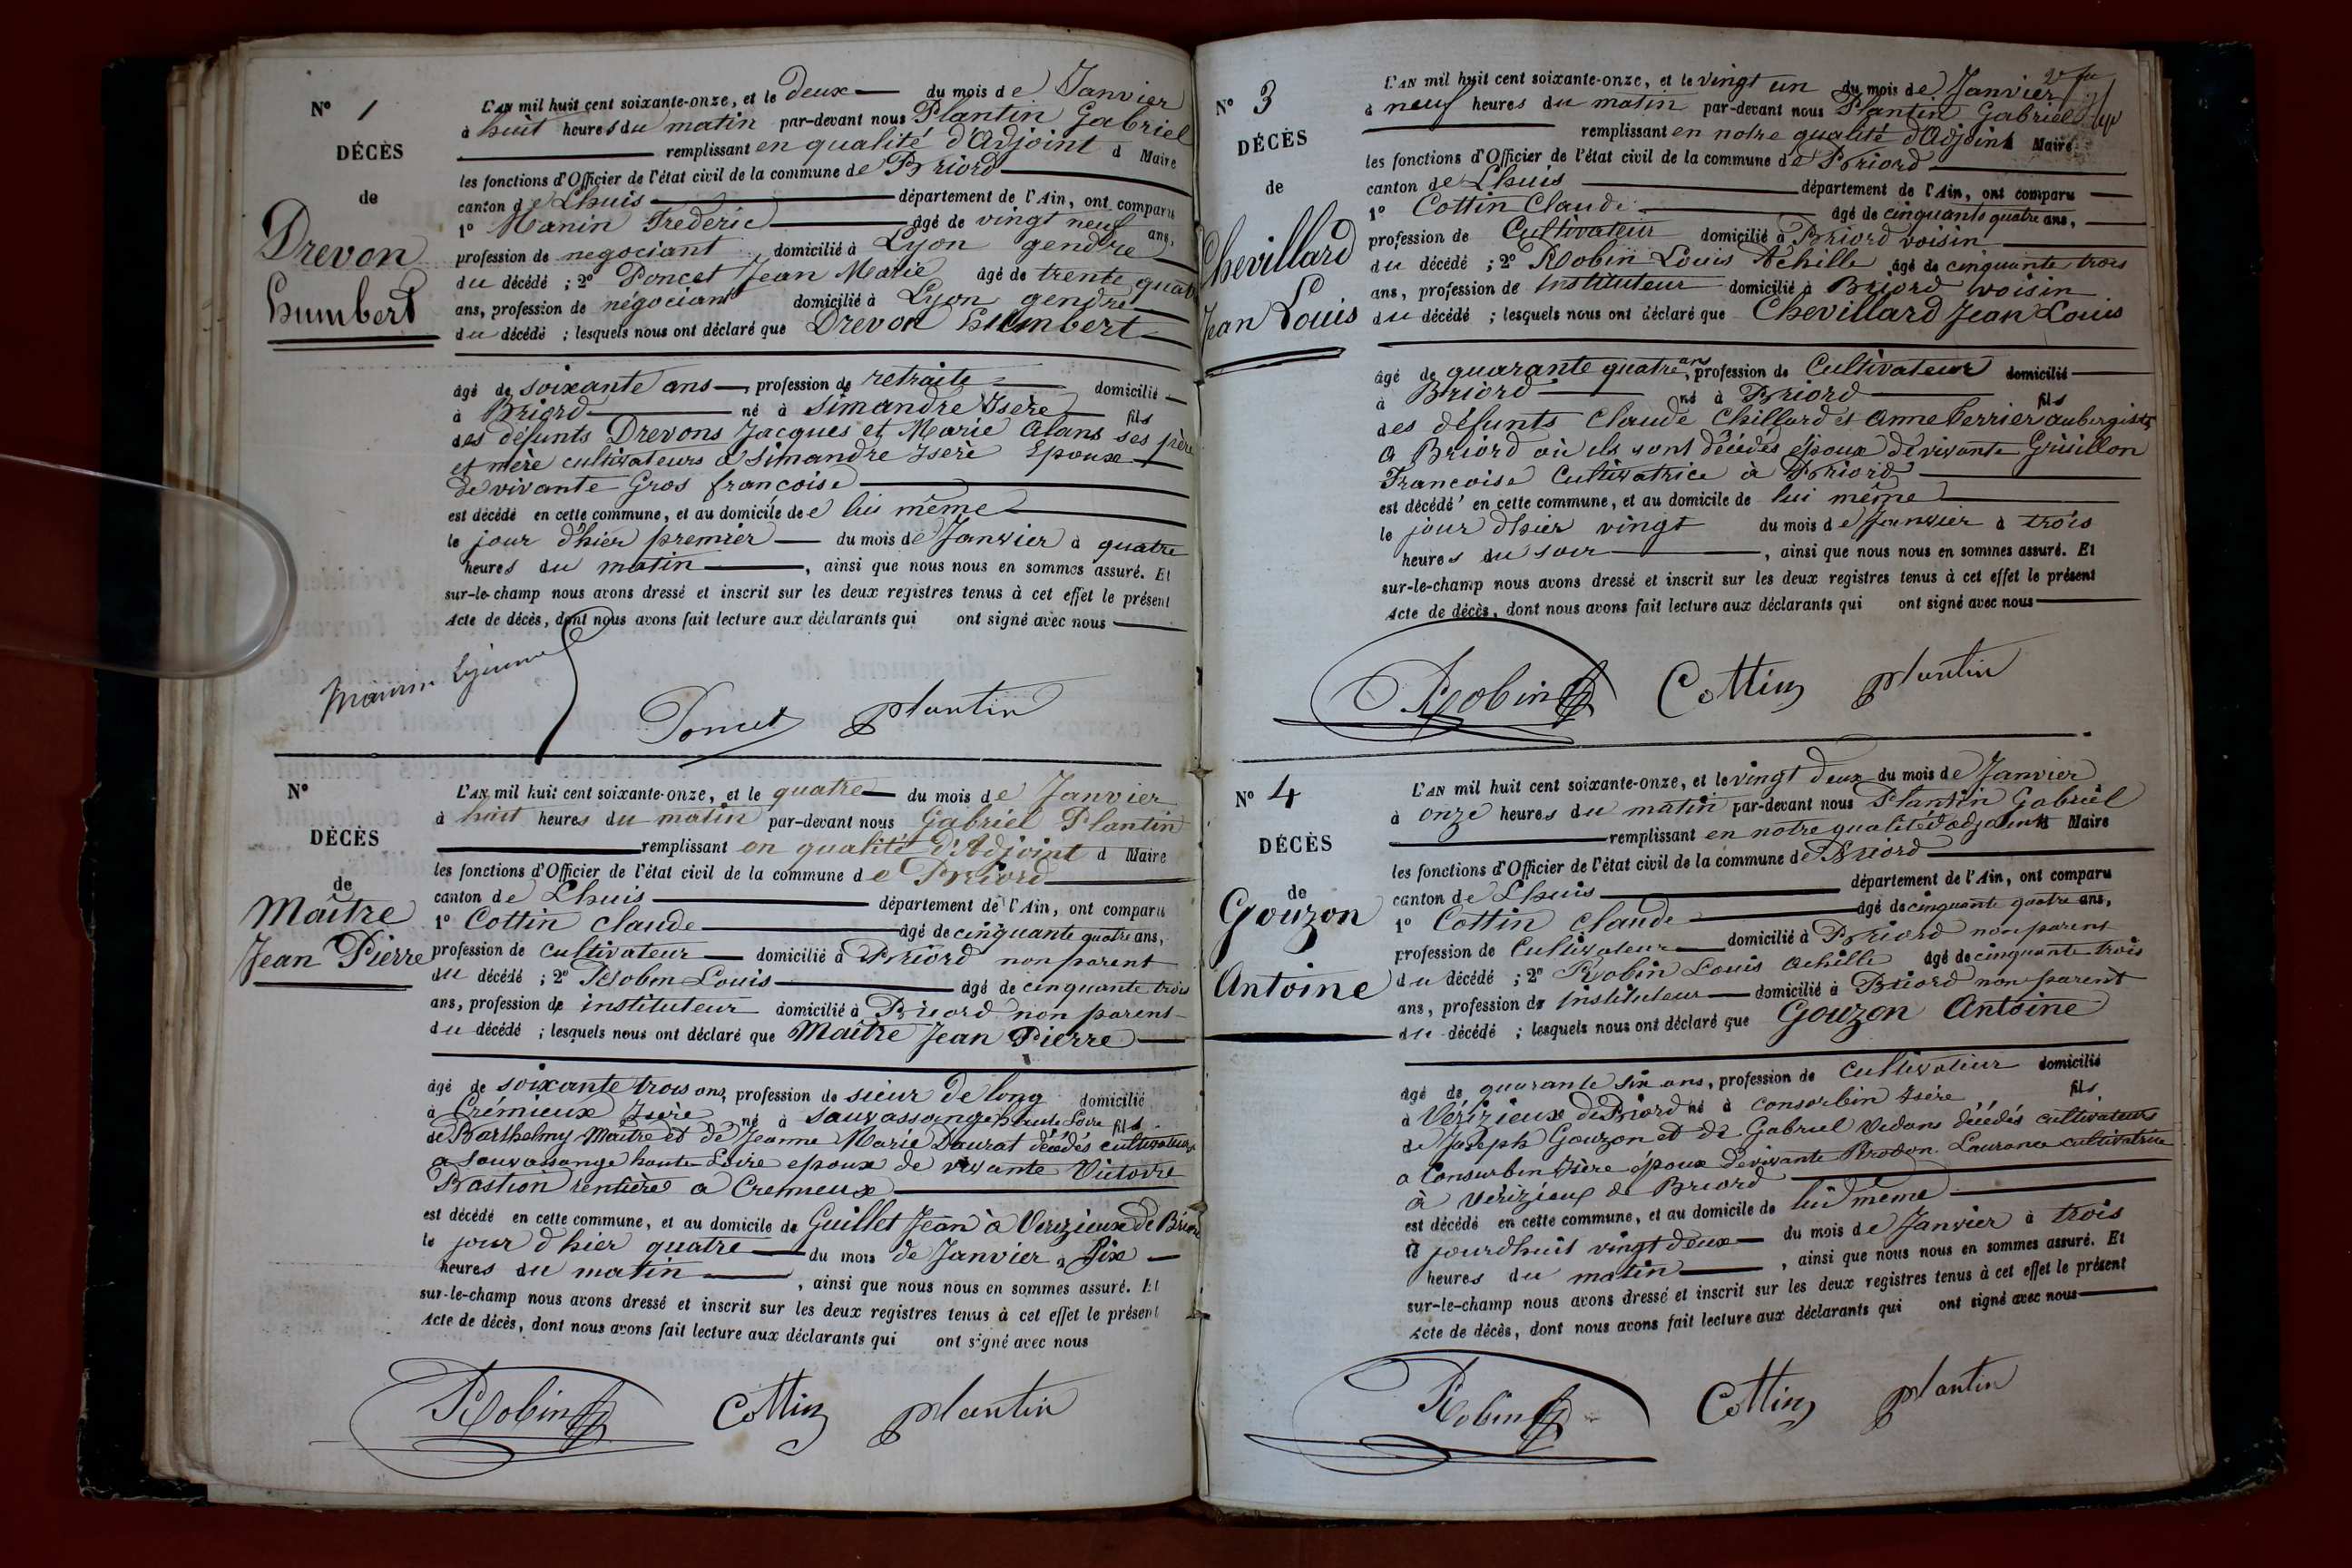 N° 1
DÉCÈS
de
Drevon
humbert
L'AN mil huit cent soixante-onze, et le deux du mois de Janvier
à huit heures du matin par-devant nous Plantin Gabriel
remplissant en qualité d'Adjoint d Maire
les fonctions d'Officier de l'état civil de la commune de Briord
canton de Lhuis département de l'Ain, ont comparu
1° Manin Frederic âgé de vingt neuf ans,
profession de negociant domicilié à Lyon gendre
du décédé ; 2° Poncet Jean Marie âgé de trente quatre
ans, profession de négociant domicilié à Lyon gendre
du décédé ; lesquels nous ont déclaré que Drevon humbert
âgé de soixante ans, profession de retraite domicilié
à Briord né à Simandre Isère fils
des défunts Drevons Jacques et Marie Alans ses père
et mère cultivateurs a Simandre Isère Epoux
de vivante Gros francoise
est décédé en cette commune, et au domicile de lui même
le jour d'hier premier du mois de Janvier à quatre
heures du matin, ainsi que nous nous en sommes assuré. Et
sur-le-champ nous avons dressé et inscrit sur les deux registres tenus à cet effet le présent
Acte de décès, dont nous avons fait lecture aux déclarants qui ont signé avec nous
Poncet plantin
N°
DÉCÈS
de
Maître
Jean Pierre
L'AN mil huit cent soixante-onze, et le quatre du mois de Janvier
à huit heures du matin par-devant nous Gabriel Plantin
remplissant en qualité d'Adjoint d Maire
les fonctions d'Officier de l'état civil de la commune de Briord
canton de Lhuis département de l'Ain, ont comparu
1° Cottin claude âgé de cinquante quatre ans,
profession de cultivateur domicilié à Briord non parent
du décédé ; 2° Robin Louis âgé de cinquante trois
ans, profession de instituteur domicilié à Briord non parent
du décédé ; lesquels nous ont déclaré que Maître Jean Pierre
âgé de soixante trois ans, profession de sieur de long domicilié
à Crémieux Isère né à sauvassange haute Loire fils
de Barthelmy Maitre et de Jeanne Marie Daurat décédés cultivateurs
a Sauvassange haute Loire epoux de vivante Victoire
Bastion rentière a Cremieux
est décédé en cette commune, et au domicile de Guillet Jean à Verizieux de Briord
le jour d'hier quatre du mois de Janvier à Six
heures du matin, ainsi que nous nous en sommes assuré. Et
sur-le-champ nous avons dressé et inscrit sur les deux registres tenus à cet effet le présent
Acte de décès, dont nous avons fait lecture aux déclarants qui ont signé avec nous
Robin Cottin plantin
N° 3
DÉCÈS
de
Chevillard
Jean Louis
L'AN mil huit cent soixante-onze, et le vingt un du mois de Janvier
à neuf heures du matin par-devant nous Plantin Gabriel
remplissant en notre qualité d'Adjoint Maire
les fonctions d'Officier de l'état civil de la commune de Briord
canton de Lhuis département de l'Ain, ont comparu
1° Cottin Claude âgé de cinquante quatre ans,
profession de Cultivateur domicilié à Briord voisin
du décédé ; 2° Robin Louis Achille âgé de cinquante trois
ans, profession de Instituteur domicilié à Briord voisin
du décédé ; lesquels nous ont déclaré que Chevillard Jean Louis
âgé de quarante quatre ans, profession de Cultivateur domicilié
à Briord né à Briord fils
des défunts Claude Chillard et Anne Perrier aubergiste
a Briord où ils sont décédés époux de vivante Grisillon
Francoise Cultivatrice à Briord
est décédé en cette commune, et au domicile de lui même
le jour d'hier vingt du mois de Janvier à trois
heures du soir, ainsi que nous nous en sommes assuré. Et
sur-le-champ nous avons dressé et inscrit sur les deux registres tenus à cet effet le présent
Acte de décès, dont nous avons fait lecture aux déclarants qui ont signé avec nous
Robin Cottin plantin
N° 4
DÉCÈS
de
Gouzon
Antoine
L'AN mil huit cent soixante-onze, et le vingt deux du mois de Janvier
à onze heures du matin par-devant nous Plantin Gabriel
remplissant en notre qualité d'adjoint Maire
les fonctions d'Officier de l'état civil de la commune de Briord
canton de Lhuis département de l'Ain, ont comparu
1° Cottin Claude âgé de cinquante quatre ans,
profession de Cultivateur domicilié à Briord non parent
du décédé ; 2° Robin Louis Achille âgé de cinquante trois
ans, profession de Instituteur domicilié à Briord non parent
du décédé ; lesquels nous ont déclaré que Gouzon Antoine
âgé de quarante six ans, profession de Cultivateur domicilié
à Vérizieux de Briord né à Consorbin Isère fils
de Joseph Gouzon et de Gabriel Vedans décédés cultivateurs
a Consorbin Isère époux de vivante Laurance cultivatrice
à Verizieux de Briord
est décédé en cette commune, et au domicile de lui même
le jourdhuit vingt deux du mois de Janvier à trois
heures du matin, ainsi que nous nous en sommes assuré. Et
sur-le-champ nous avons dressé et inscrit sur les deux registres tenus à cet effet le présent
Acte de décès, dont nous avons fait lecture aux déclarants qui ont signé avec nous
Robin Cottin plantin